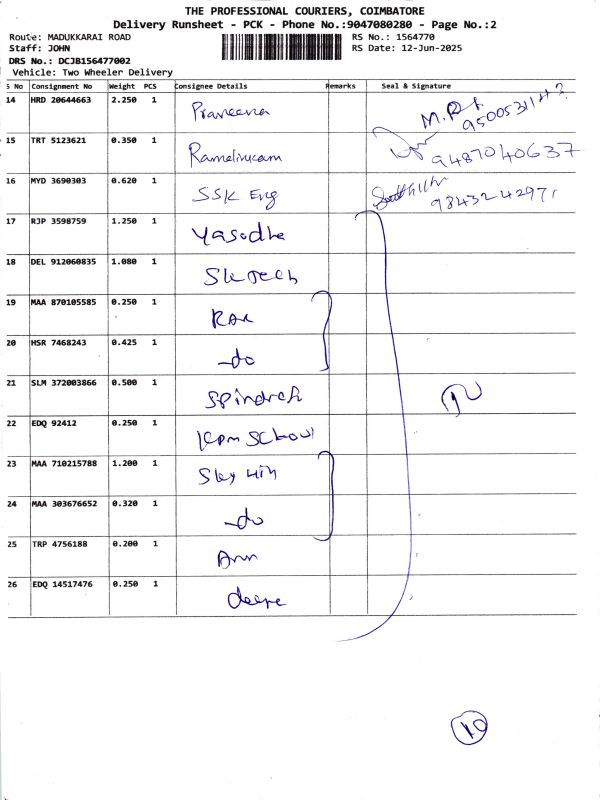 THE PROFESSIONAL COURIERS, COIMBATORE
Delivery Runsheet - PCK - Phone No.:9047080280 - Page No.:2
Route: MADUKKARAI ROAD RS No.: 1564770
Staff: JOHN RS Date: 12-Jun-2025
DRS No.: DCJB156477002
Vehicle: Two Wheeler Delivery
S No Consignment No Weight PCS Consignee Details Remarks Seal & Signature
14 HRD 20644663 2.250 1 Praveena
15 TRT 5123621 0.350 1 Ramalingam 9487040637
16 MYD 3690303 0.620 1 SSK Eng 9843242971
17 RJP 3598759 1.250 1 Yasodha
18 DEL 912060835 1.080 1 SK Tech
19 MAA 870105585 0.250 1
20 HSR 7468243 0.425 1 -do
21 SLM 372003866 0.500 1
22 EDQ 92412 0.250 1 School
23 MAA 710215788 1.200 1 Sky
24 MAA 303676652 0.320 1 -do
25 TRP 4756188 0.200 1
26 EDQ 14517476 0.250 1
10